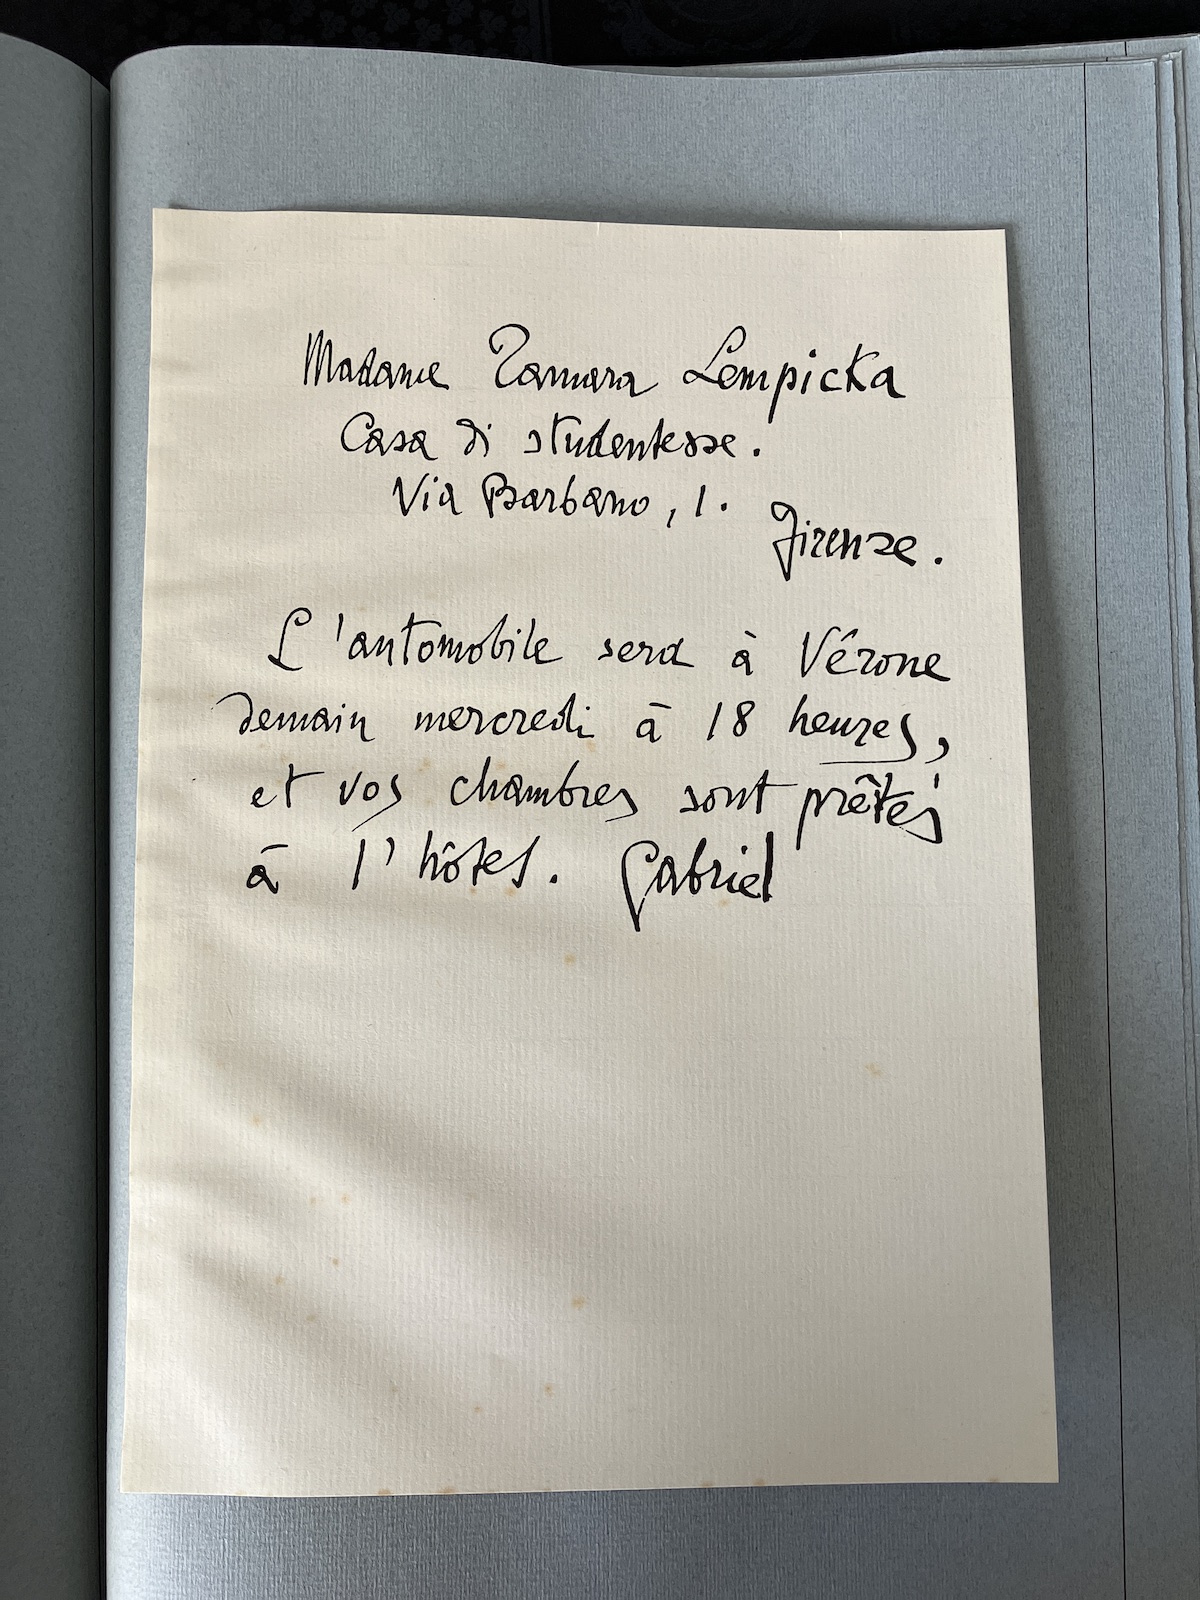 Madame Tamara Lempicka
Casa di studentesse.
Via Barbano, 1.
Firenze.
L'automobile sera à Vérone
demain mercredi à 18 heures,
et vos chambres sont prêtes
à l'hôtel. Gabriel